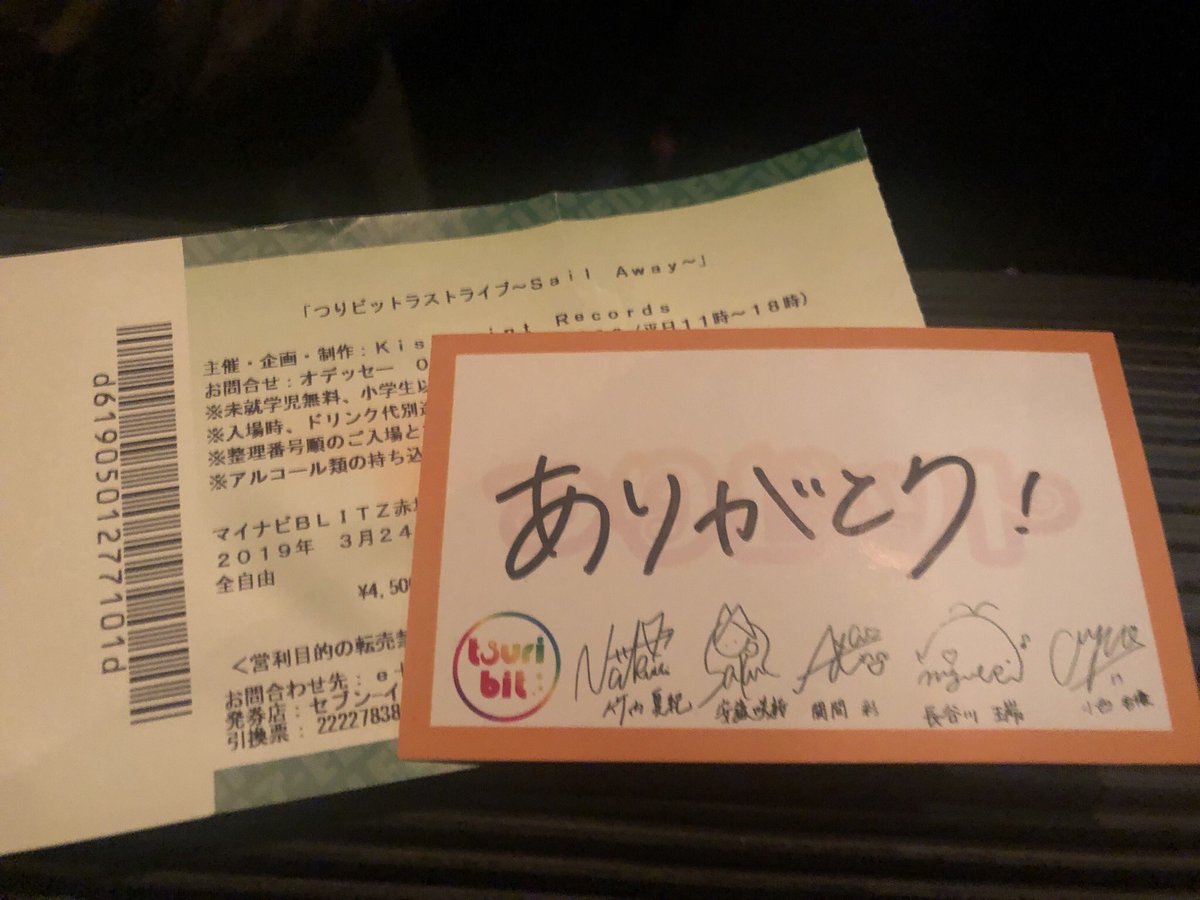 「つりビットラストライブ~Sail Away~」
主催・企画・制作:Kis
int Records
お問合せ:オデッセー 0
(平日11時~18時)
※未就学児無料、小学生以
※入場時、ドリンク代別途
※整理番号順のご入場と
※アルコール類の持ち込
マイナビBLITZ赤坂
2019年 3月24
全自由
¥4,50
<営利目的の転売禁
お問合わせ先:e+
発券店:セブン-イ
引換票:22227838
d6190501277101d
ありがとう!
tsuri
bit
竹内 夏紀
安藤 咲桜
聞間 彩
長谷川 瑞
小西 杏優